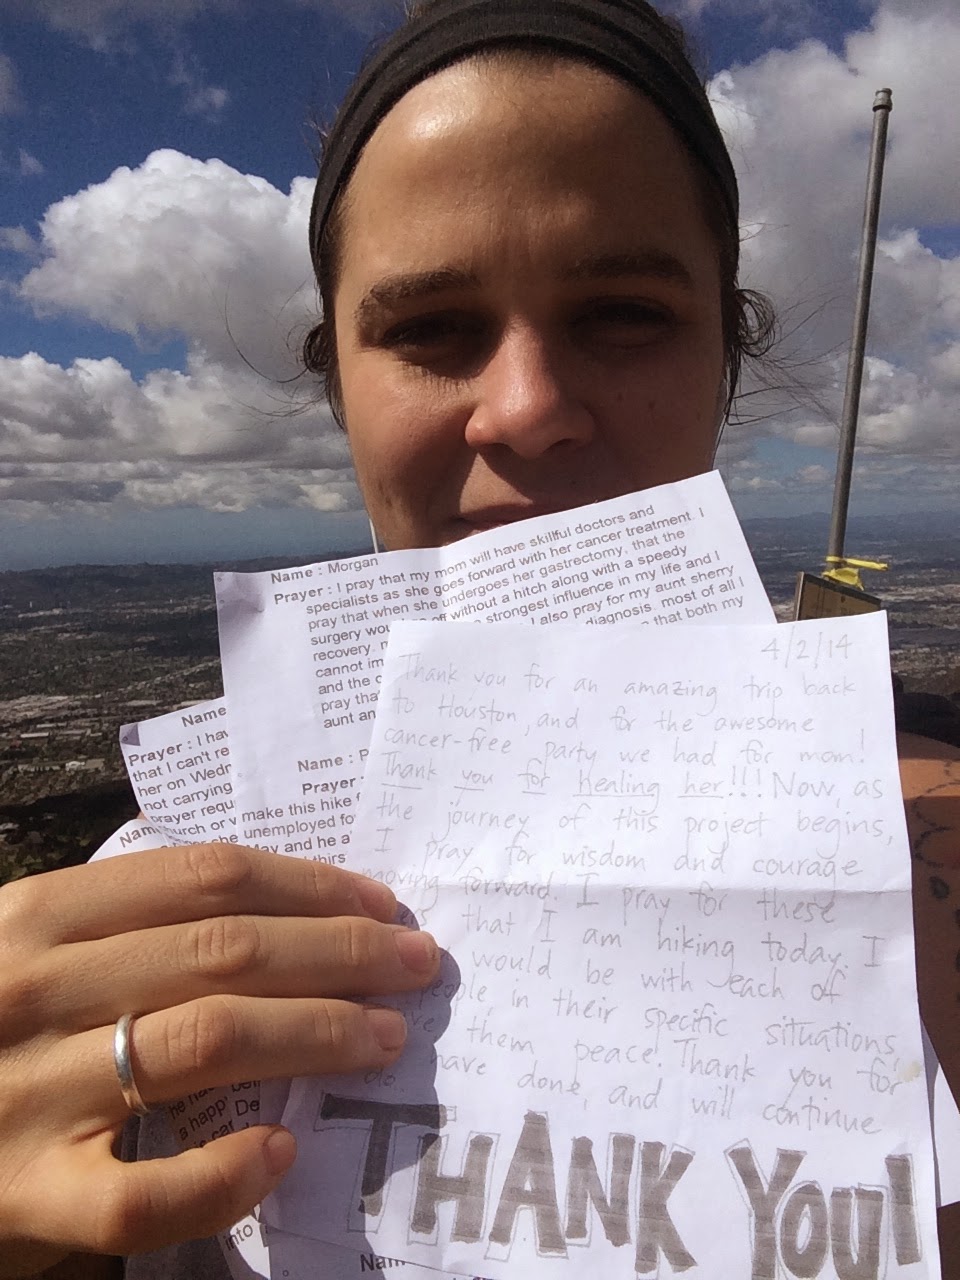 Name : Morgan
Prayer : I pray that my mom will have skillful doctors and
specialists as she goes forward with her cancer treatment. I
pray that when she undergoes her gastrectomy, that the
surgery wou off without a hitch along with a speedy
recovery. strongest influence in my life and I
cannot im I also pray for my aunt sherry
and the c diagnosis. most of all I
pray tha that both my
aunt an
Name : P
Prayer :
make this hike f
unemployed fo
May and he a
thirs
Name
Prayer : I hav
that I can't re
her on Wedn
not carrying
prayer requ
Nam
church or v
4/2/14
Thank you for an amazing trip back
to Houston, and for the awesome
cancer-free party we had for mom!
Thank you for healing her!!! Now, as
the journey of this project begins,
I pray for wisdom and courage
moving forward. I pray for these
ers that I am hiking today. I
would be with each of
people, in their specific situations,
ve them peace! Thank you for
have done, and will continue
do.
THANK YOU!
he ha
a happ
De
into
Nam